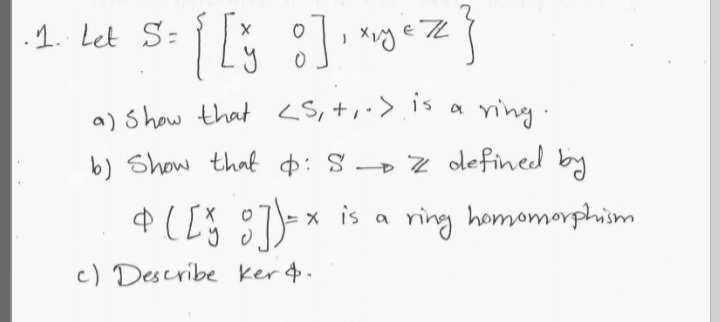 .1. Let S = { [ x 0 ; y 0 ] , x,y ∈ ℤ }
a) Show that <S, +, ·> is a ring.
b) Show that ϕ: S → ℤ defined by
ϕ ( [ x 0 ; y 0 ] ) = x is a ring homomorphism
c) Describe ker ϕ.